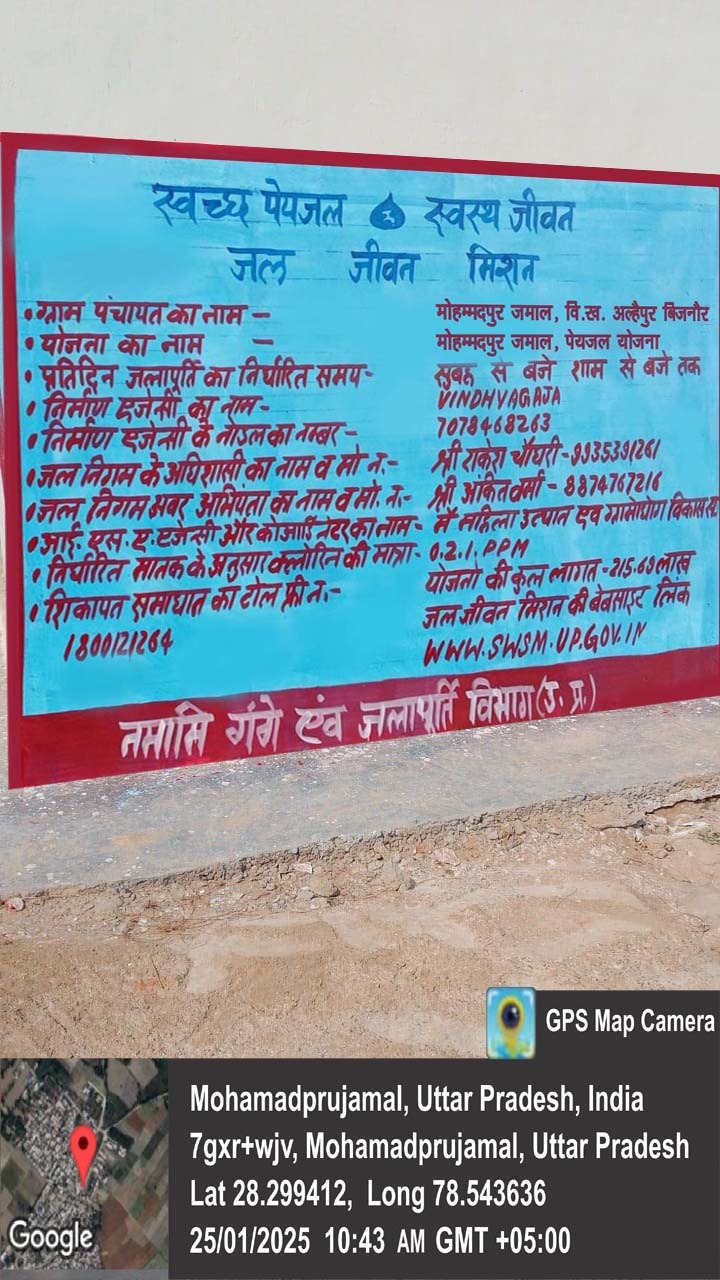 स्वच्छ पेयजल स्वस्थ जीवन
जल जीवन मिशन
• ग्राम पंचायत का नाम – मोहम्मदपुर जमाल, वि.ख. अल्हैपुर बिजनौर
• योजना का नाम – मोहम्मदपुर जमाल, पेयजल योजना
• प्रतिदिन जलापूर्ति का निर्धारित समय- सुबह से बजे शाम से बजे तक
• निर्माण एजेन्सी का नाम- VINDHYAGAJA
• निर्माण एजेन्सी के नोडल का नम्बर- 7078468263
• जल निगम के अधिशासी का नाम व मो न.- श्री राकेश चौधरी -9935391261
• जल निगम अवर अभियंता का नाम व मो. न.- श्री अंकित वर्मा - 8874767216
• आई. एस. ए. एजेन्सी और कोआर्डिनेटर का नाम- मै महिला उत्थान एवं ग्रामोद्योग विकास
• निर्धारित मानक के अनुसार क्लोरिन की मात्रा- 0.2.1. PPM
योजना की कुल लागत -215.69 लाख
• शिकायत समाधान का टोल फ्री न.- जल जीवन मिशन की वेबसाइट लिंक
1800121264 WWW.SWSM.UP.GOV.IN
नमामि गंगे एंव जलापूर्ति विभाग (उ. प्र.)
GPS Map Camera
Mohamadprujamal, Uttar Pradesh, India
7gxr+wjv, Mohamadprujamal, Uttar Pradesh
Lat 28.299412, Long 78.543636
25/01/2025 10:43 AM GMT +05:00
Google